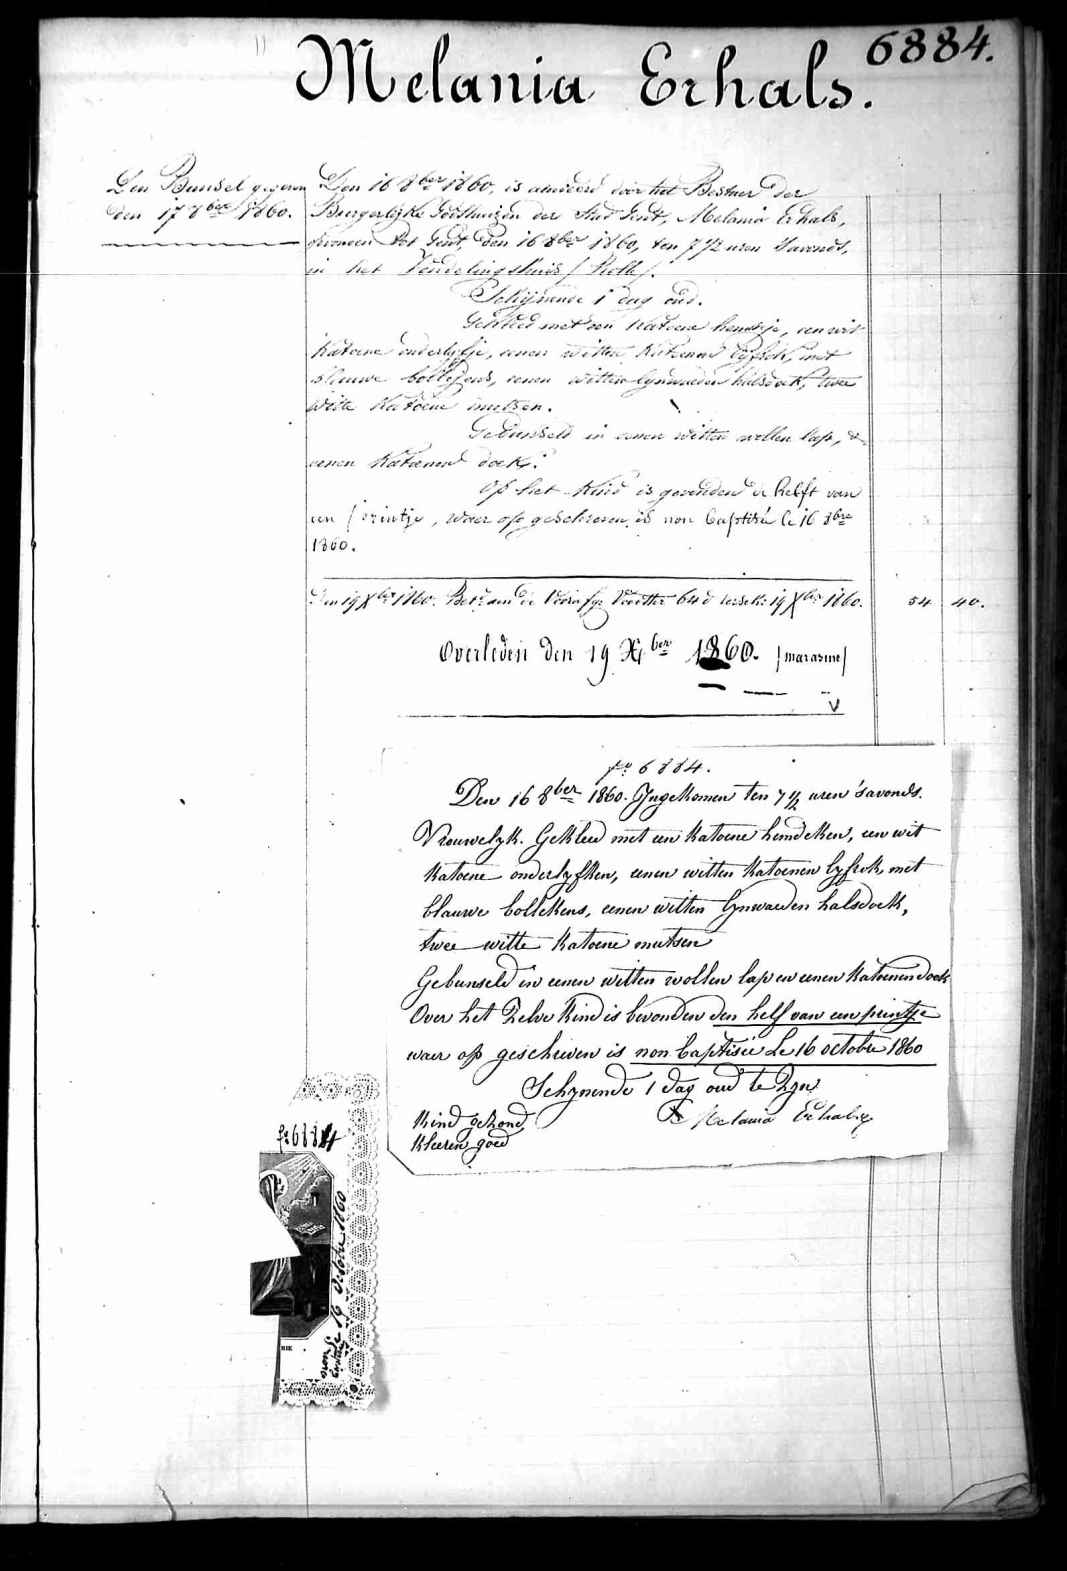 6884.
Melania Erhals.
Den Bunsel gegeven
den 17 8ber 1860.
Den 16 8ber 1860, is aenveerd door het Bestuer der
Burgerlyke Godshuizen der Stad Gent, Melania Erhals,
gevonden tot Gent, den 16 8ber 1860, ten 7 1/2 uren 's avonds,
in het Vondelingshuis / Rolle /.
Schynende 1 dag oud.
Gekleed met een katoene hemdtje, een wit
katoene onderlyfje, eenen witten katoenen lyfrok, met
blauwe bolletjens, eenen witten lynwaeden halsdoek, twee
witte katoene mutsen.
Gebunseld in eenen witten wollen lap, &
eenen katoenen doek.
Op het kind is gevonden de helft van
een printje, waer op geschreven is non baptisée le 16 8bre
1860.
Den 19 Xber 1860. 54 40.
Overleden den 19 Xber 1860. / marasme /
No 6884.
Den 16 8ber 1860. Ingekomen ten 7 1/2 uren 's avonds.
Vrouwelyk. Gekleed met een katoene hemdeken, een wit
katoene onderlyfken, eenen witten katoenen lyfrok, met
blauwe bollekens, eenen witten lynwaeden halsdoek,
twee witte katoene mutsen
Gebunseld in eenen witten wollen lap en eenen katoenen doek
Over het zelve kind is bevonden den helf van een printje
waer op geschreven is non baptisée Le 16 octobre 1860
Schynende 1 dag oud te zyn
Kind gezond Melania Erhals
Kleeren goed
No 6884
non baptisée Le 16 Octobre 1860
RIE